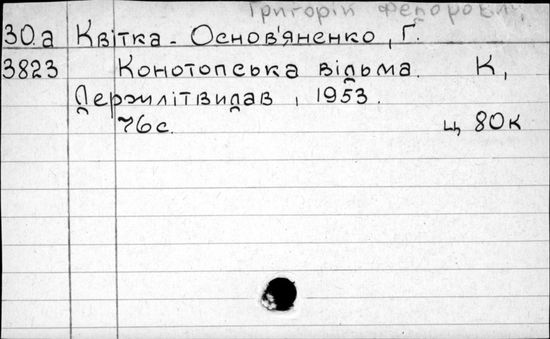 Григорій Федорович
30.а Квітка - Основ'яненко, Г.
3823 Конотопська відьма. К,
Держлітвидав, 1953.
76с. ц 80к